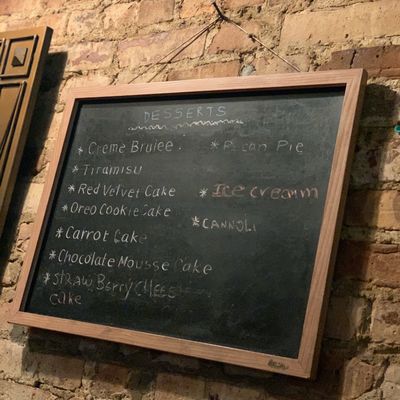 DESSERTS
* Creme Brulee .
* Pecan Pie
* Tiramisu
* Red Velvet Cake
* Ice cream
* Oreo Cookie Cake
* CANNOLI
* Carrot Cake
* Chocolate Mousse Cake
* STRAWBErry CHEES
cake